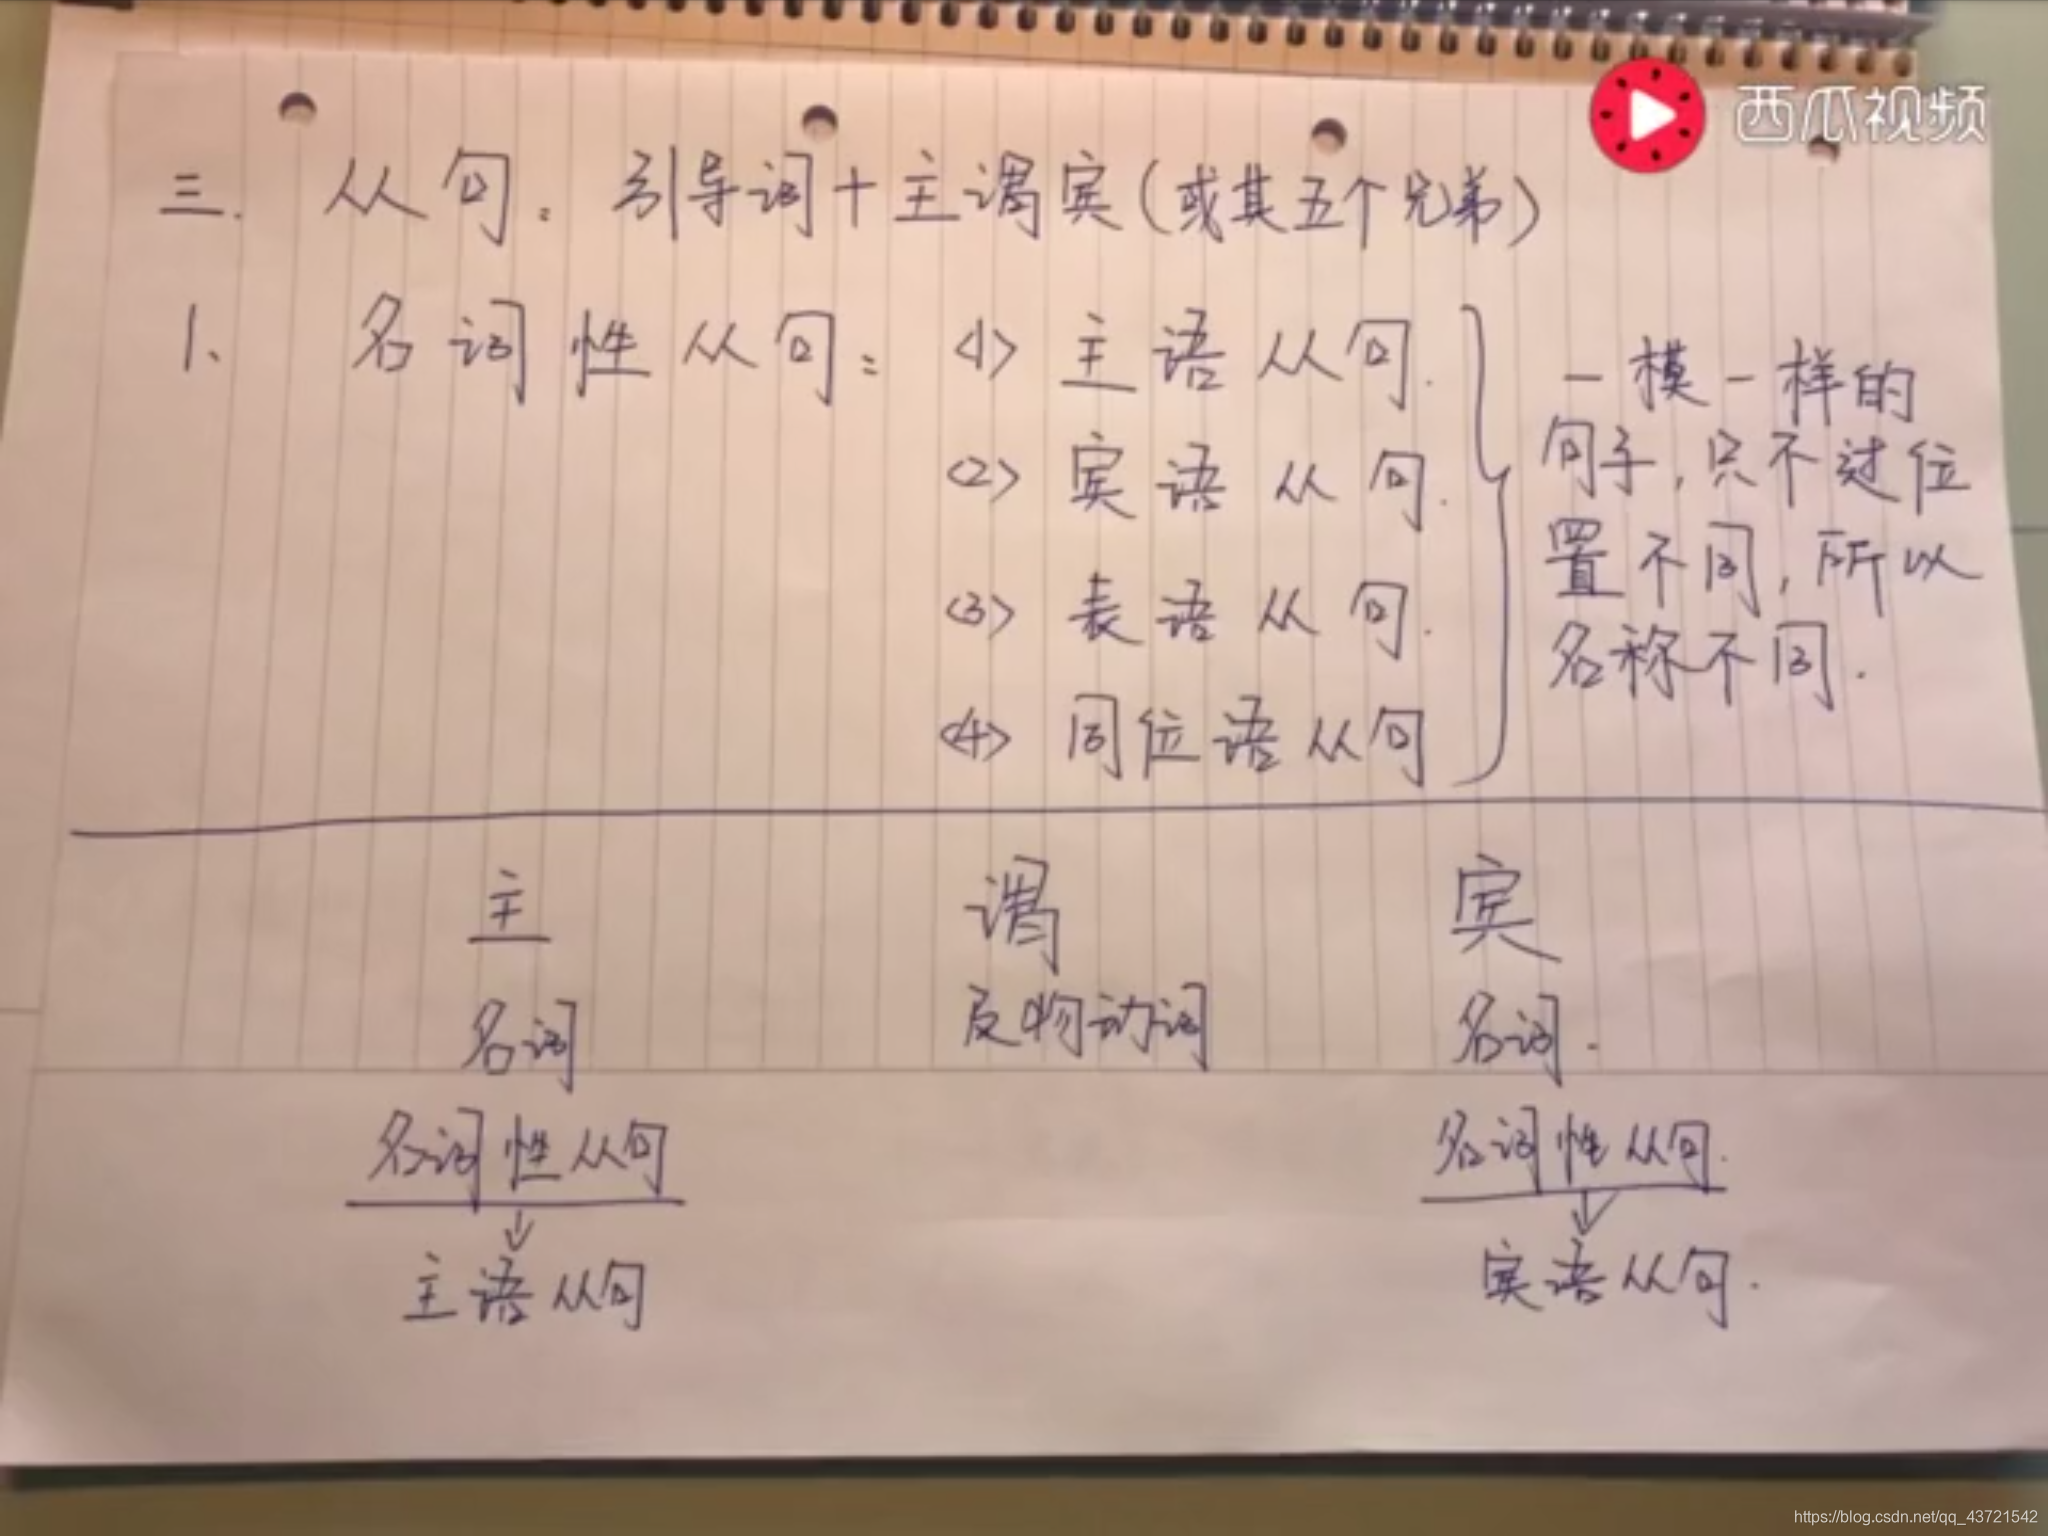 西瓜视频
三. 从句: 引导词+主谓宾(或其五个兄弟)
1、 名词性从句: <1> 主语从句.
<2> 宾语从句.
<3> 表语从句.
<4> 同位语从句
一模一样的
句子,只不过位
置不同,所以
名称不同.
主 谓 宾
名词 及物动词 名词.
名词性从句 名词性从句.
↓ ↓
主语从句 宾语从句.
https://blog.csdn.net/qq_43721542